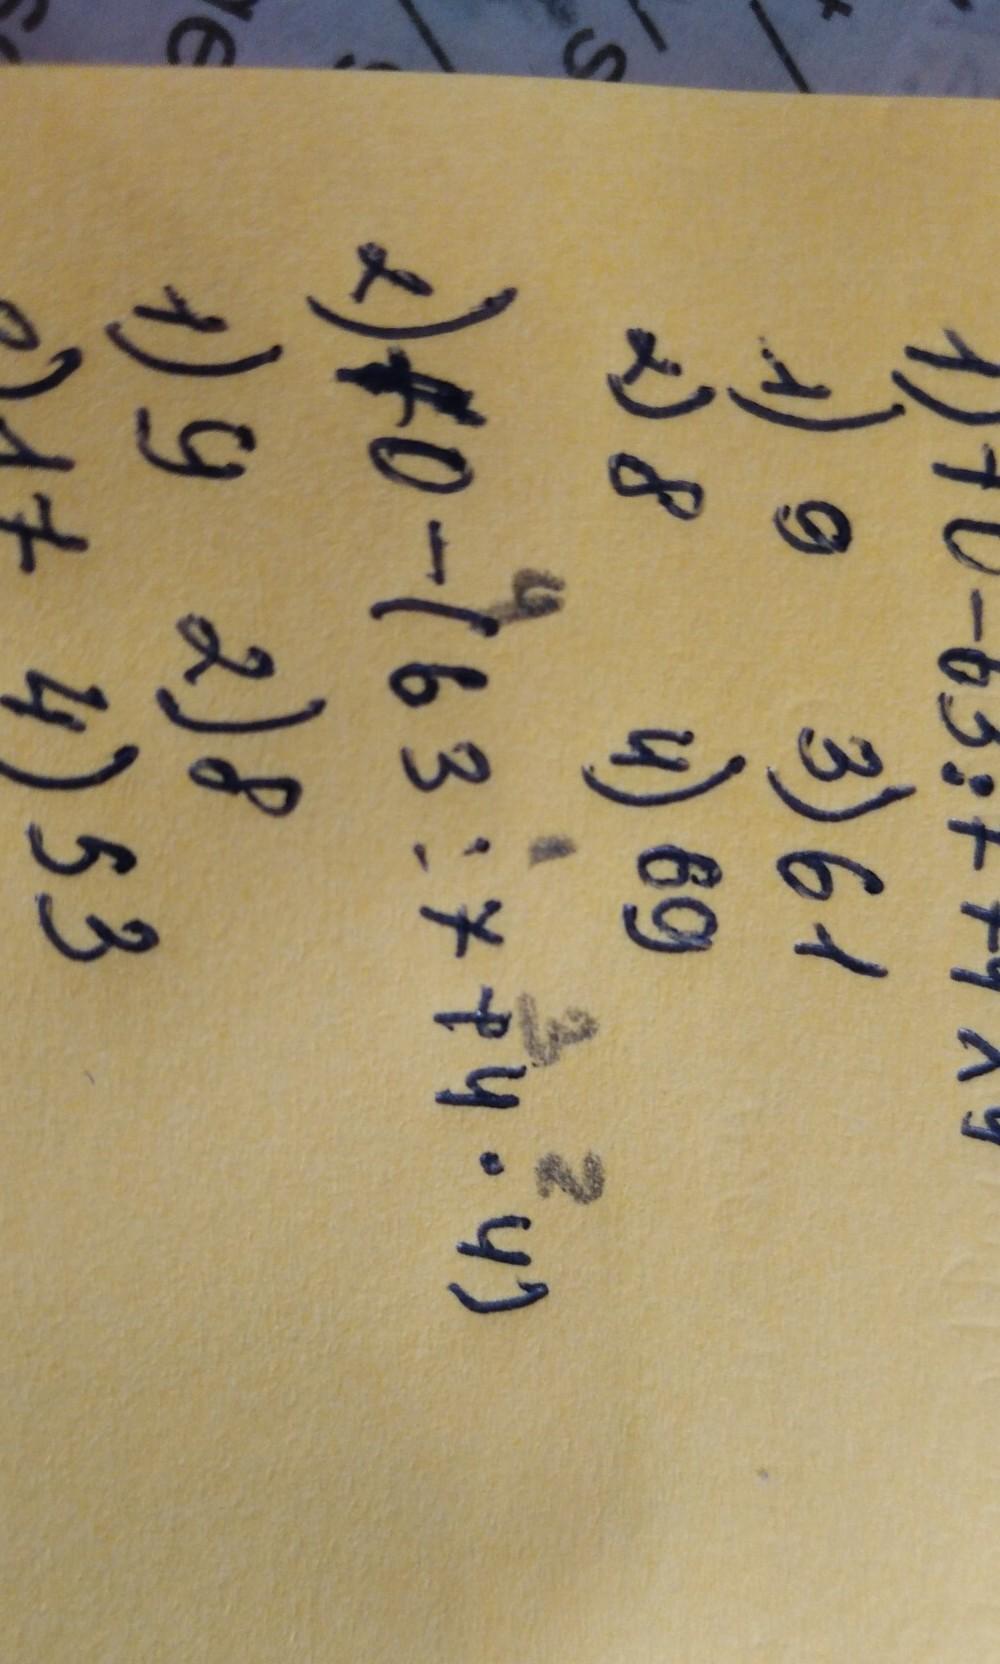 1) 70-63:7+4×4
1) 9 3) 61
2) 8 4) 69
4 1 3 2
2) 70-(63:7+4·4)
1) 9 2) 8
3) 17 4) 53